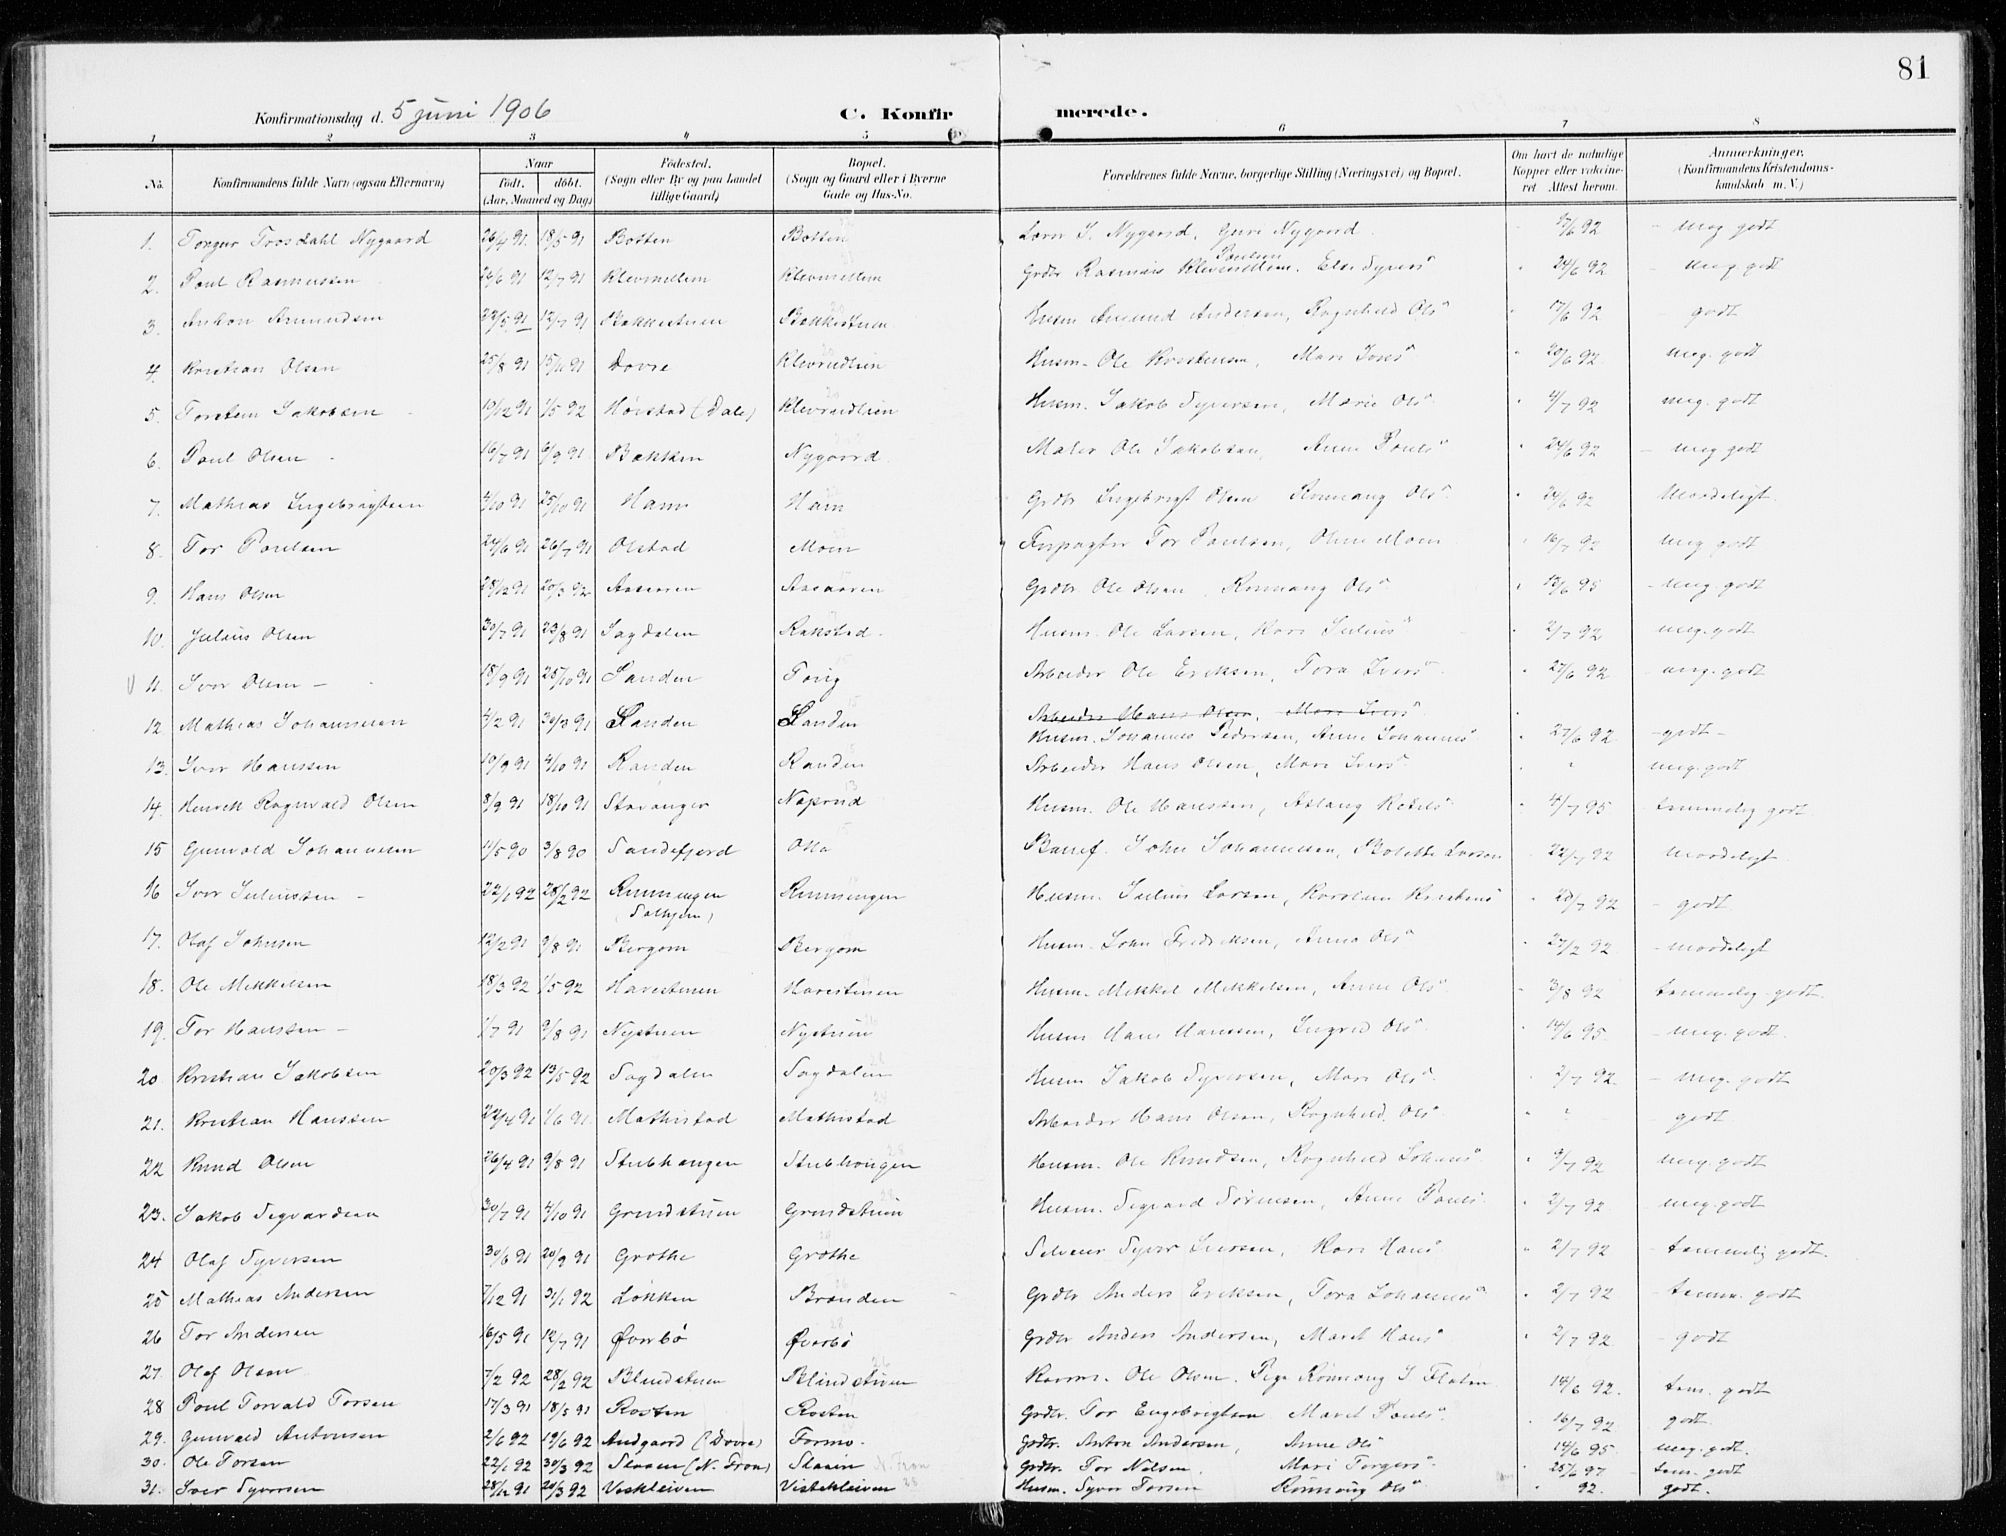 81
Konfirmationsdag d. 5 juni 1906 C. Konfirmerede.
1 2 3 4 5 6 7 8
No. Konfirmandens fulde Navn (ogsaa Efternavn) Naar født, døbt. (Aar, Maaned og Dag) Fødested. (Sogn eller By og paa Landet tillige Gaard) Bopæl. (Sogn og Gaard eller i Byerne Gade og Hus-No. Forældrenes fulde Navne, borgerlige Stilling (Næringsvei) og Bopæl. Om havt de naturlige Kopper eller vaccineret Attest herom. Anmærkninger. (Konfirmandens Kristendomskundskab m. V.)
1. Torger Trosdahl Nygaard 26/4 91 18/5 91 Botten Botten Lærer S. Nygaard, Guri Nygaard 17/6 92 meg godt
2. Poul Rasmussen 26/6 91 12/7 91 Klevmellem Klevmellem Grdbr Rasmus Poulsen Klevmellem. Else Syvers" 24/6 92 meg. godt
3. Anton Amundsen 29/5 91 12/7 91 Bakkestuen Bakkestuen Husm Amund Andersen, Ragnhild Ols" 17/6 92 godt
4. Kristian Olsen 25/8 91 15/11 91 Dovre Klevrudlien Husm. Ole Kristensen, Mari Ivers" 20/6 92 meg. godt
5. Torstein Jakobsen 19/12 91 1/5 92 Høistad (Dale) Klevrudlien Husm. Jakob Syversen, Marie Ols" 4/7 92 meg. godt
6. Poul Olsen 16/7 91 6/9 91 Bakken Nygaard Maler Ole Jakobsen, Anne Pouls" 24/6 92 meg godt
7. Mathias Ingebrigtsen 4/10 91 25/10 91 Ham Ham Grdbr Ingebrigt Olsen Rønnaug Ols" 24/6 92 Maadeligt
8. Tor Poulsen 24/6 91 26/7 91 Olstad Moen Forpagter Tor Poulsen, Oline Moen 16/7 92 meg godt
9. Hans Olsen 28/12 91 20/3 92 Aasaaren Aasaaren Grdbr. Ole Olsen, Rønnaug Ols" 12/6 95 meg. godt
10. Julius Olsen 30/7 91 23/8 91 Sagdalen Rakstad Husm. Ole Larsen, Kari Julius" 2/7 92 meg. godt
11. Ivar Olsen 18/9 91 25/10 91 Sanden Toug Arbeider Ole Eriksen, Tora Ivers" 27/6 92 meg. godt
12. Mathias Johannesen 4/2 91 30/3 91 Sanden Sanden Arbeider Hans Olsen, Mari Ivers"
Husm. Johannes Pedersen, Anne Johannes" 27/6 92 godt
13. Ivar Hanssen 19/9 91 4/10 91 Randen Randen Arbeider Hans Olsen, Mari Ivers" " meg. godt
14. Henrik Ragnvald Olsen 8/9 91 18/10 91 Stavanger Naprud Husm. Ole Hanssen, Aslaug Ketils" 4/7 95 temmelig godt
15 Gunvald Johannesen 11/5 90 3/8 90 Sandefjord Otta Banef. John Johannesen, Bolette Larsen 22/7 92 maadeligt
16 Ivar Juliussen 22/1 92 28/2 92 Rusmingen (Solhjem) Rusmingen Husm. Julius Larsen, Karoline Kristens" 20/7 92 godt
17. Olaf Johnsen 12/2 91 9/8 91 Bergom Bergom Husm. John Fredriksen, Anna Ols" 27/2 92 maadeligt
18. Ole Mikkelsen 18/3 92 1/5 92 Havestuen Havestuen Husm. Mikkel Mikkelsen, Anne Ols" 3/8 92 temmelig godt.
19. Tor Hanssen 1/7 91 9/8 91 Nystuen Nystuen Husm Hans Hanssen, Ingrid Ols" 14/6 95 meg. godt.
20 Kristian Jakobsen 20/3 92 13/5 92 Sagdalen Sagdalen Husm Jakob Syversen, Mari Ols" 2/7 92 meg. godt
21. Kristian Hanssen 22/4 91 1/6 91 Mathistad Mathistad Arbeider Hans Olsen, Ragnhild Ols" " godt
22 Knud Olsen 26/4 91 9/8 91 Stubhaugen Stubhaugen Husm. Ole Knudsen, Ragnhild Johans" 9/7 92 meg. godt
23. Jakob Sigvardsen 30/7 91 4/10 91 Grindstuen Grindstuen Husm. Sigvard Sørensen, Anne Pouls" 2/7 92 meg. godt
24 Olaf Syversen 30/6 91 20/9 91 Grøthe Grøthe Selveier Syver Iversen, Kari Hans" 2/7 92 temmelig godt.
25 Mathias Andersen 7/12 91 31/1 92 Løkken Brænden Grdbr Anders Eriksen, Tora Johannes" 2/7 92 temm. godt
26 Tor Andersen 16/5 91 12/7 91 Øverbø Øverbø Grdbr Anders Andersen, Marit Hans" 2/7 92 godt
27. Olaf Olsen 7/2 92 28/2 92 Blindstuen Blindstuen Ole Olsen. Pige Rønnaug J. Flaten 14/6 92 tem. godt
28 Poul Torvald Torsen 17/3 91 18/5 91 Rosten Rosten Grdbr. Tor Engebrigtsen Marit Pouls" 16/7 92 godt
29. Gunvald Antonsen 2/6 92 19/6 92 Andgaard (Dovre) Formo. Grdbr. Anton Andersen, Anne Ols" 14/6 95 meg. godt.
30. Ole Torsen 22/1 92 30/3 92 Slaaen (N. Fron) Slaaen N. Fron Grdbr. Tor Nilsen, Mari Torgers" 25/6 97 tem. godt
31. Iver Syversen 28/12 91 20/3 92 Veskleiven Vistekleiven 28 Husm. Syver Torsen Rønnaug Ols" 92. godt.